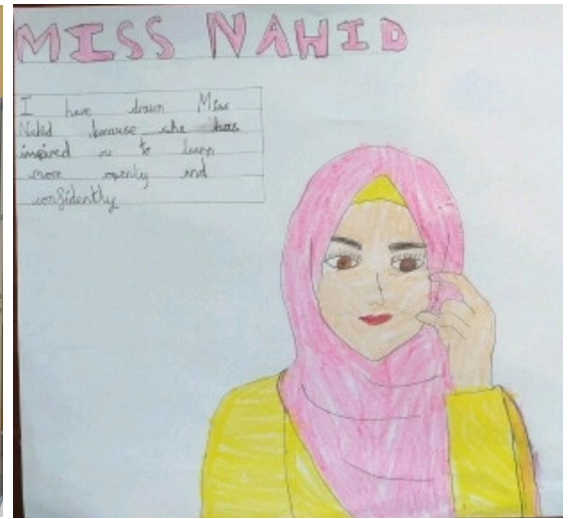 MISS NAHID
I have drawn Miss
Nahid because she has
inspired me to learn
more openly and
confidently